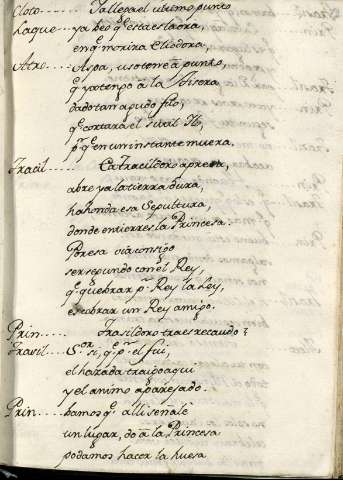 Cloto...... Ya llega el ultimo punto
Laque.... ya beo q.e esta es la ora,
en q.e morira Eliodora.
Atro..... Aspa, uso tone a punto,
q.e ya tengo a la tisera
dado tan agudo filo,
q.e cortará el sutil Ilo,
p.a q.e en un instante muera.
Tracil...... Ea Tracildoro apriesa,
abre ya la tierra dura,
hahonda esa Sepultura,
donde entierres la Princesa.
Por esa via consigo
ser segundo con el Rey,
q.e quebrar p.r Rey la Ley,
es cobrar un Rey amigo.
Prin...... Trasildoro traes recaudo?
Trasil.... S.or si, q.e p.r el fui,
el hazada traigo aqui
y el animo aparejado.
Prin..... bamos q.e alli señalé
un lugar, do a la Princesa
podamos hacer la huesa